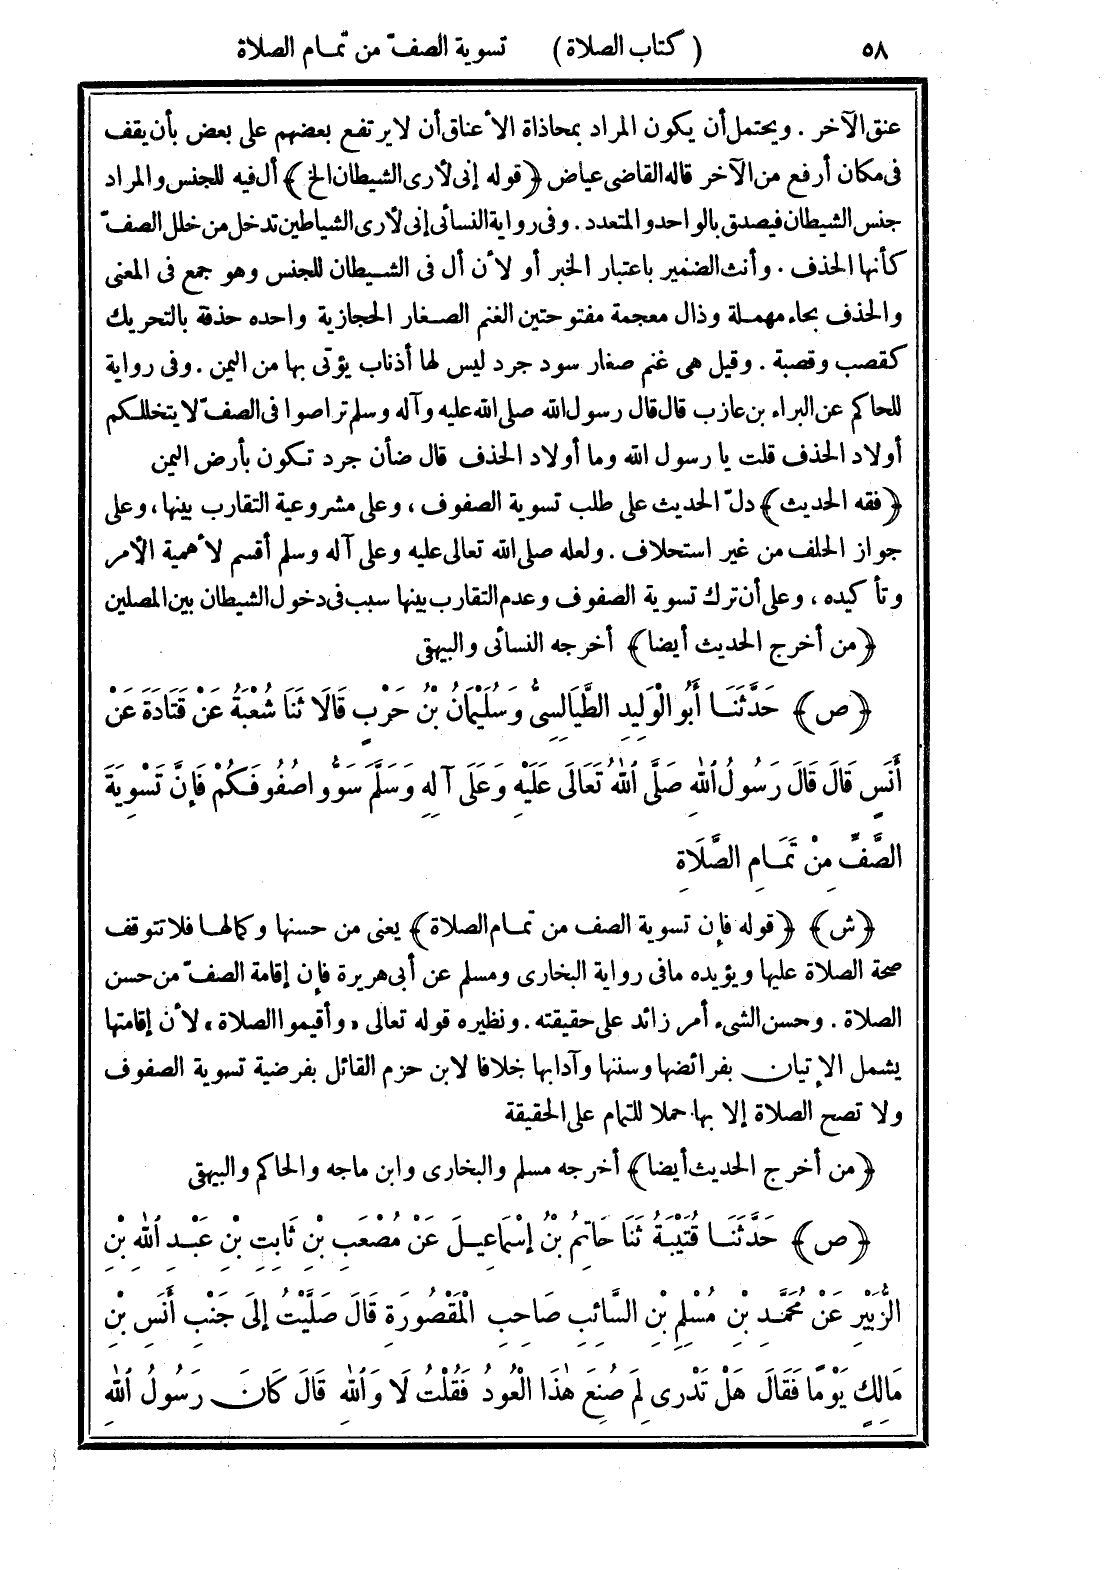 ٥٨ ( كتاب الصلاة ) تسوية الصفّ من تمام الصلاة
عنق الآخر . ويحتمل أن يكون المراد بمحاذاة الأعناق أن لايرتفع بعضهم على بعض بأن يقف
فى مكان أرفع من الآخر قاله القاضى عياض ﴿قوله إنى لأرى الشيطان الخ﴾ أل فيه للجنس والمراد
جنس الشيطان فيصدق بالواحد والمتعدد . وفى رواية النسائى إنى لأرى الشياطين تدخل من خلل الصفّ
كأنها الحذف . وأنث الضمير باعتبار الخبر أو لأن أل فى الشيطان للجنس وهو جمع فى المعنى
والحذف بحاء مهملة وذال معجمة مفتوحتين الغنم الصغار الحجازية واحده حذفة بالتحريك
كقصب وقصبة . وقيل هى غنم صغار سود جرد ليس لها أذناب يؤتى بها من اليمن . وفى رواية
للحاكم عن البراء بن عازب قال قال رسول الله صلى الله عليه وآله وسلم تراصوا فى الصفّ لا يتخللكم
أولاد الحذف قلت يا رسول الله وما أولاد الحذف قال ضأن جرد تكون بأرض اليمن
﴿فقه الحديث﴾ دلّ الحديث على طلب تسوية الصفوف ، وعلى مشروعية التقارب بينها ، وعلى
جواز الحلف من غير استحلاف . ولعله صلى الله تعالى عليه وعلى آله وسلم أقسم لأهمية الأمر
وتأكيده ، وعلى أن ترك تسوية الصفوف وعدم التقارب بينها سبب فى دخول الشيطان بين المصلين
﴿من أخرج الحديث أيضا﴾ أخرجه النسائى والبيهقى
﴿ص﴾ حَدَّثَنَا أَبُو الْوَلِيدِ الطَّيَالِسِىُّ وَسُلَيْمَانُ بْنُ حَرْبٍ قَالَا ثَنَا شُعْبَةُ عَنْ قَتَادَةَ عَنْ
أَنَسٍ قَالَ قَالَ رَسُولُ اللهِ صَلَّى اللهُ تَعَالَى عَلَيْهِ وَعَلَى آلِهِ وَسَلَّمَ سَوُّوا صُفُوفَكُمْ فَإِنَّ تَسْوِيَةَ
الصَّفِّ مِنْ تَمَامِ الصَّلَاةِ
﴿ش﴾ ﴿قوله فإن تسوية الصف من تمام الصلاة﴾ يعنى من حسنها وكمالها فلا تتوقف
صحة الصلاة عليها ويؤيده مافى رواية البخارى ومسلم عن أبى هريرة فإن إقامة الصفّ من حسن
الصلاة . وحسن الشىء أمر زائد على حقيقته . ونظيره قوله تعالى «وأقيموا الصلاة» لأن إقامتها
يشمل الإتيان بفرائضها وسننها وآدابها خلافا لابن حزم القائل بفرضية تسوية الصفوف
ولا تصح الصلاة إلا بها حملا للتمام على الحقيقة
﴿من أخرج الحديث أيضا﴾ أخرجه مسلم والبخارى وابن ماجه والحاكم والبيهقى
﴿ص﴾ حَدَّثَنَا قُتَيْبَةُ ثَنَا حَاتِمُ بْنُ إِسْمَاعِيلَ عَنْ مُصْعَبِ بْنِ ثَابِتِ بْنِ عَبْدِ اللهِ بْنِ
الزُّبَيْرِ عَنْ مُحَمَّدِ بْنِ مُسْلِمِ بْنِ السَّائِبِ صَاحِبِ الْمَقْصُورَةِ قَالَ صَلَّيْتُ إِلَى جَنْبِ أَنَسِ بْنِ
مَالِكٍ يَوْمًا فَقَالَ هَلْ تَدْرِى لِمَ صُنِعَ هٰذَا الْعُودُ فَقُلْتُ لَا وَاللهِ قَالَ كَانَ رَسُولُ اللهِ